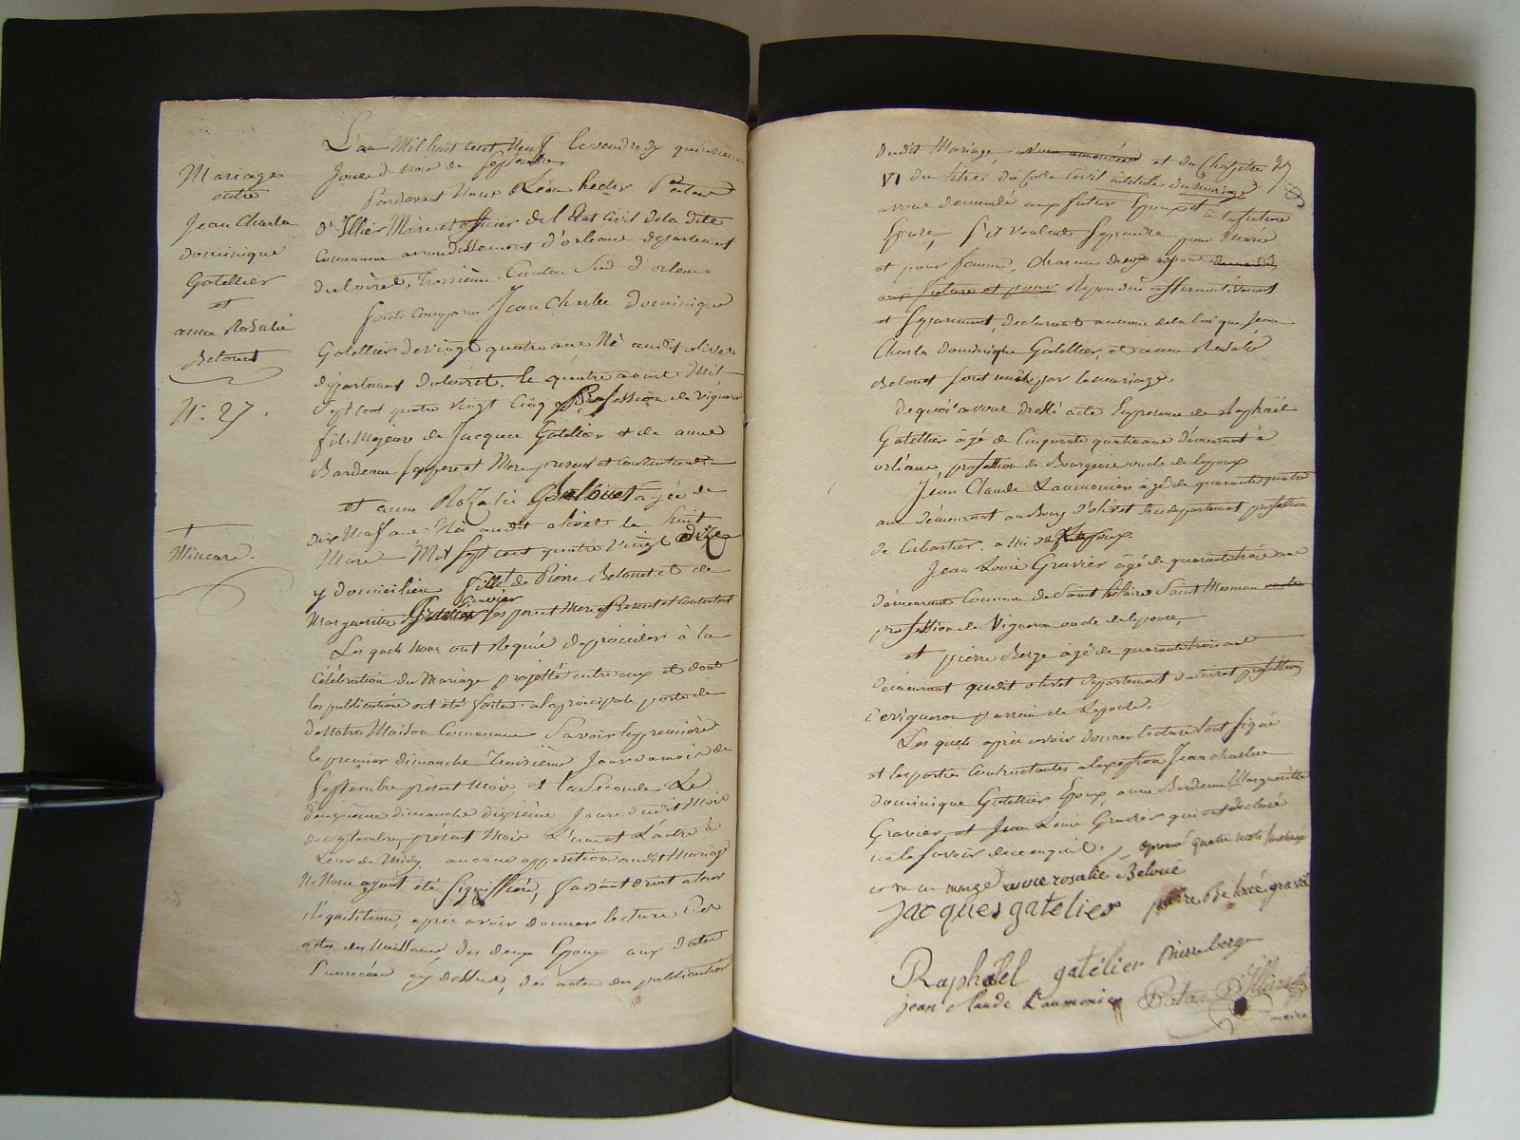 Mariage
entre
Jean Charles
dominique
Gatellier
et
anne Rosalie
Beloüet
N.° 27.
Mineure.
L'an Mil huit cent Neuf le vendredy quinzieme
Jour du mois de Septembre
Pardevant Nous Léon hector Patas
d'Illiers Maire et officier de l'Etat Civil de la dite
Commune arrondissement d'orleans département
du loiret, troisieme Canton Sud d'orleans
Sont Comparus Jean Charles dominique
Gatellier de vingt quatre ans Né audit olivet
département du loiret, le quatre aoust Mil
Sept cent quatre vingt Cinq Profession de vigneron
fils Majeur de Jacques Gatelier et de anne
Bardeau Ses pere et Mere present et Consentant
et anne Rozalie Beloüet agée de
dix Neuf ans Née audit olivet le huit
Mars Mil Sept cent quatre vingt dix
y domiciliée fille de Pierre Beloüet et de
Marguerite Gravier Ses pere et Mere present et Consentant
Les quels Nous ont Requis de proceder à la
Célébration du Mariage projetté entre eux et dont
les publications ont été faites a la principale porte de
de notre Maison Commune Savoir la premiere
le premier dimanche troisieme Jour du mois de
Septembre présent Mois, et la Seconde Le
deuxieme dimanche dixieme Jour dudit Mois
de septembre, présent Mois L'une et L'autre à
heure de Midy aucune opposition audit Mariage
Ne Nous ayant été Signiffiée, faisant droit a leur
Réquisition, apres avoir donner lecture des
actes de Naissance des deux Epoux aux dates
Enoncées cy dessus, des actes de publication
dudit Mariage et du Chapitre
VI du titre du Code Civil intitulé du mariage
avons demandé aux futur Epoux et à la future
Epouse, S'il veulent Se prendre pour Marie
et pour femme, Chacun deux ayant
aux future et pour Répondu affirmativement
et Separement, declarons au nom de la Loi que Jean
Charles Dominique Gatellier, et anne Rosalie
Beloüet Sont unis par le mariage.
De quoi avons dressé acte En presence de Raphaël
Gatellier âgé de Cinquante quatre ans demeurant à
orléans, profession de Bourgeois oncle de lepoux
Jean Claude Laumonier âgé de quarante quatre
ans demeurant au Bourg d'olivet departement profession
de Cabartier ami de l'Epoux
Jean Louis Gravier âgé de quarante trois ans
demeurant Commune de Saint hilaire Saint Mesmin
profession de Vigneron oncle de lepouse,
et pierre Berge agé de quarante trois ans
demeurant audit olivet departement du loiret profession
de vigneron parrain de Lepouse.
Les quels apres avoir donner lecture Sont Signé
et les parties Contractantes a l'exception Jean charles
dominique Gatellier Epoux, anne Bardeau Marguerite
Gravier, et Jean Louis Gravier qui ont declaré
ne le Savoir de ce enquit. approuvé quatre mots
en marge anne rosalie Beloüé
jacques gatelier pierre Beloüé gravié
Raphaël gatélier Pierre berge
jean Claude Laumonier Patas D'Illiers
maire